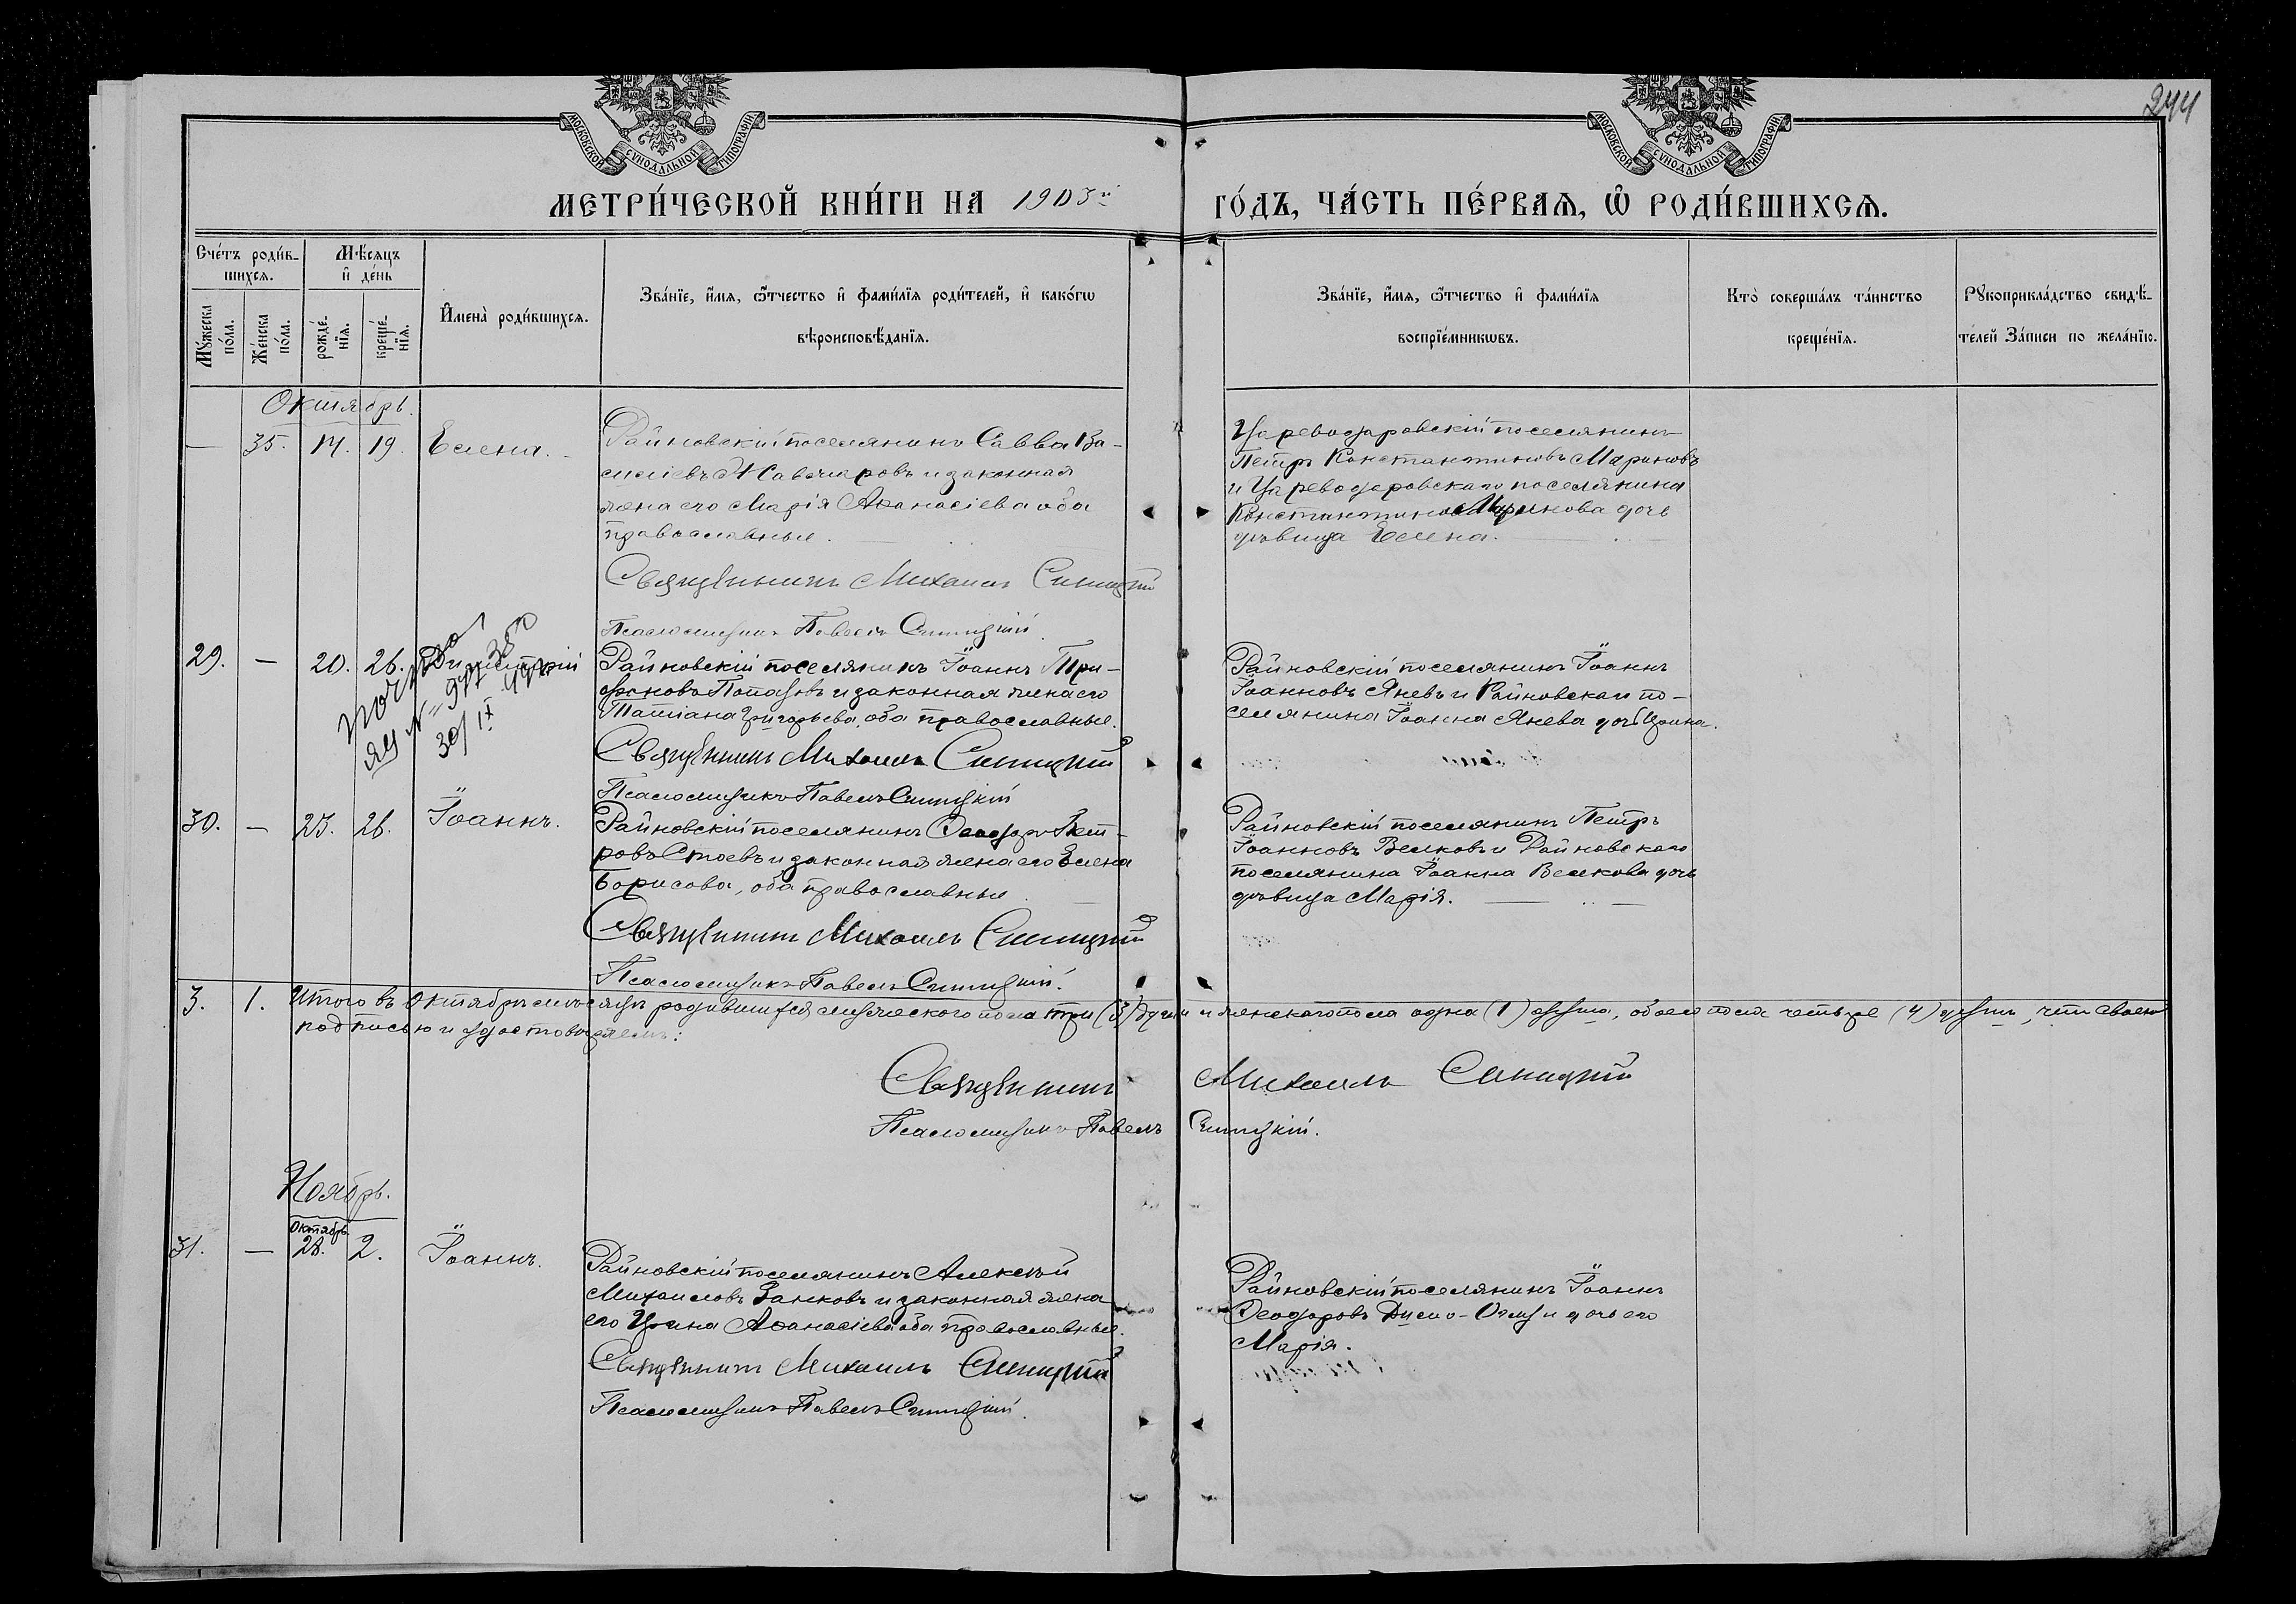 244
МОСКОВСКОЙ СѴНОДАЛЬНОЙ ТИПОГРАФІИ
МОСКОВСКОЙ СѴНОДАЛЬНОЙ ТИПОГРАФІИ
МЕТРИ́ЧЕСКОЙ КНИ́ГИ НА 1903й
ГО́ДЪ, ЧА́СТЬ ПЕ́РВАѦ, Ѡ РОДИ́ВШИХСѦ.
Сче́тъ роди́вшихсѧ.
Мꙋ́жеска по́ла.
Же́нска по́ла.
Мѣ́сѧцъ и҆ де́нь
рожде́нїѧ.
креще́нїѧ.
И҆мена̀ роди́вшихсѧ.
Зва́нїе, и҆́мѧ, ѻ҆́тчество и҆ фами́лїѧ роди́телей, и҆ како́гѡ
вѣроисповѣ́данїѧ.
Зва́нїе, и҆́мѧ, ѻ҆́тчество и҆ фами́лїѧ
воспрїе́мникѡвъ.
Кто̀ соверша́лъ та́инство
креще́нїѧ.
Рꙋкоприкла́дство свидѣ́-
телей За́писи по жела́нїю.
Октябрь.
— 35. 14. 19. Елена.
Райновскій поселянинъ Савва Ва-
силіевъ и законная
жена его Марія Аѳанасіева оба
православные.
Священникъ Михаилъ Синицкій
Псаломщикъ Павелъ Синицкій.
Царедаровскій поселянинъ
Петръ Константиновъ Мариновъ
и поселянина
Константинова Маринова дочь
дѣвица Елена.
29. — 20. 26. Димитрій
30/IX
Райновскій поселянинъ Іоаннъ Три-
фоновъ и законная жена его
Татіана Григорьева, оба православные.
Священникъ Михаилъ Синицкій
Псаломщикъ Павелъ Синицкій
Райновскій поселянинъ Іоаннъ
Іоанновъ Яневъ и Райновскаго по-
селянина Іоанна Янева дочь Ирина.
30. — 25. 26. Іоаннъ.
Райновскій поселянинъ Ѳеодоръ Пет-
ровъ Стоевъ и законная жена его Елена
Борисова, оба православные.
Священникъ Михаилъ Синицкій
Псаломщикъ Павелъ Синицкій.
Райновскій поселянинъ Петръ
Іоанновъ Велковъ и Райновскаго
поселянина Іоанна Велкова дочь
дѣвица Марія.
3. 1. Итого въ Октябрѣ мѣсяцѣ родившихся мужескаго пола три (3) души и женскаго пола одна (1) душа, обоего пола четыре (4) души, что своею
подписью и удостовѣряемъ:
Священникъ Михаилъ Синицкій
Псаломщикъ Павелъ Синицкій.
Ноябрь.
Октябрь
31. — 28. 2. Іоаннъ.
Райновскій поселянинъ Алексѣй
Михаиловъ Занковъ и законная жена
его Ирина Аѳанасіева оба православные.
Священникъ Михаилъ Синицкій
Псаломщикъ Павелъ Синицкій.
Райновскій поселянинъ Іоаннъ
Ѳеодоровъ и дочь его
Марія.